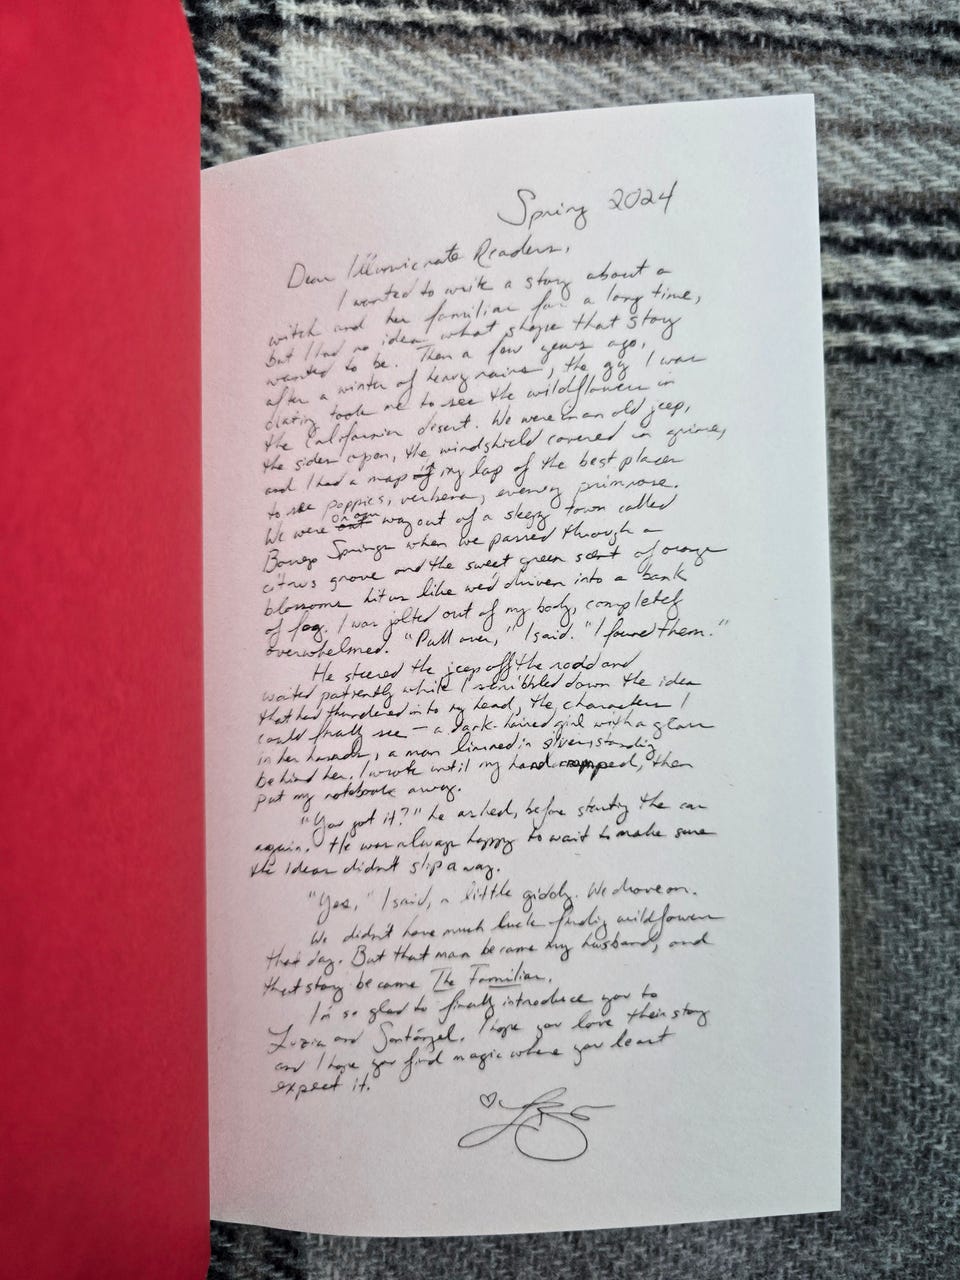 Spring 2024
Dear Illumicrate Readers,
I wanted to write a story about a
witch and her familiar for a long time,
but I had no idea what shape that story
wanted to be. Then a few years ago,
after a winter of heavy rains, the guy I was
dating took me to see the wildflowers in
the California desert. We were in an old jeep,
the sides open, the windshield covered in grime,
and I had a map in my lap of the best places
to see poppies, verbena, evening primrose.
We were on our way out of a sleepy town called
Borrego Springs when we passed through a
citrus grove and the sweet green scent of orange
blossoms hit us like we'd driven into a bank
of fog. I was jolted out of my body, completely
overwhelmed. "Pull over," I said. "I found them."
He steered the jeep off the road and
waited patiently while I scribbled down the idea
that had thundered into my head, the characters I
could finally see — a dark-haired girl with a glass
in her hands, a man limned in silver, standing
behind her. I wrote until my hand cramped, then
put my notebook away.
"You got it?" he asked, before starting the car
again. He was always happy to wait to make sure
the ideas didn't slip away.
"Yes," I said, a little giddy. We drove on.
We didn't have much luck finding wildflowers
that day. But that man became my husband, and
that story became The Familiar.
I'm so glad to finally introduce you to
Luzia and Santángel. I hope you love their story
and I hope you find magic where you least
expect it.